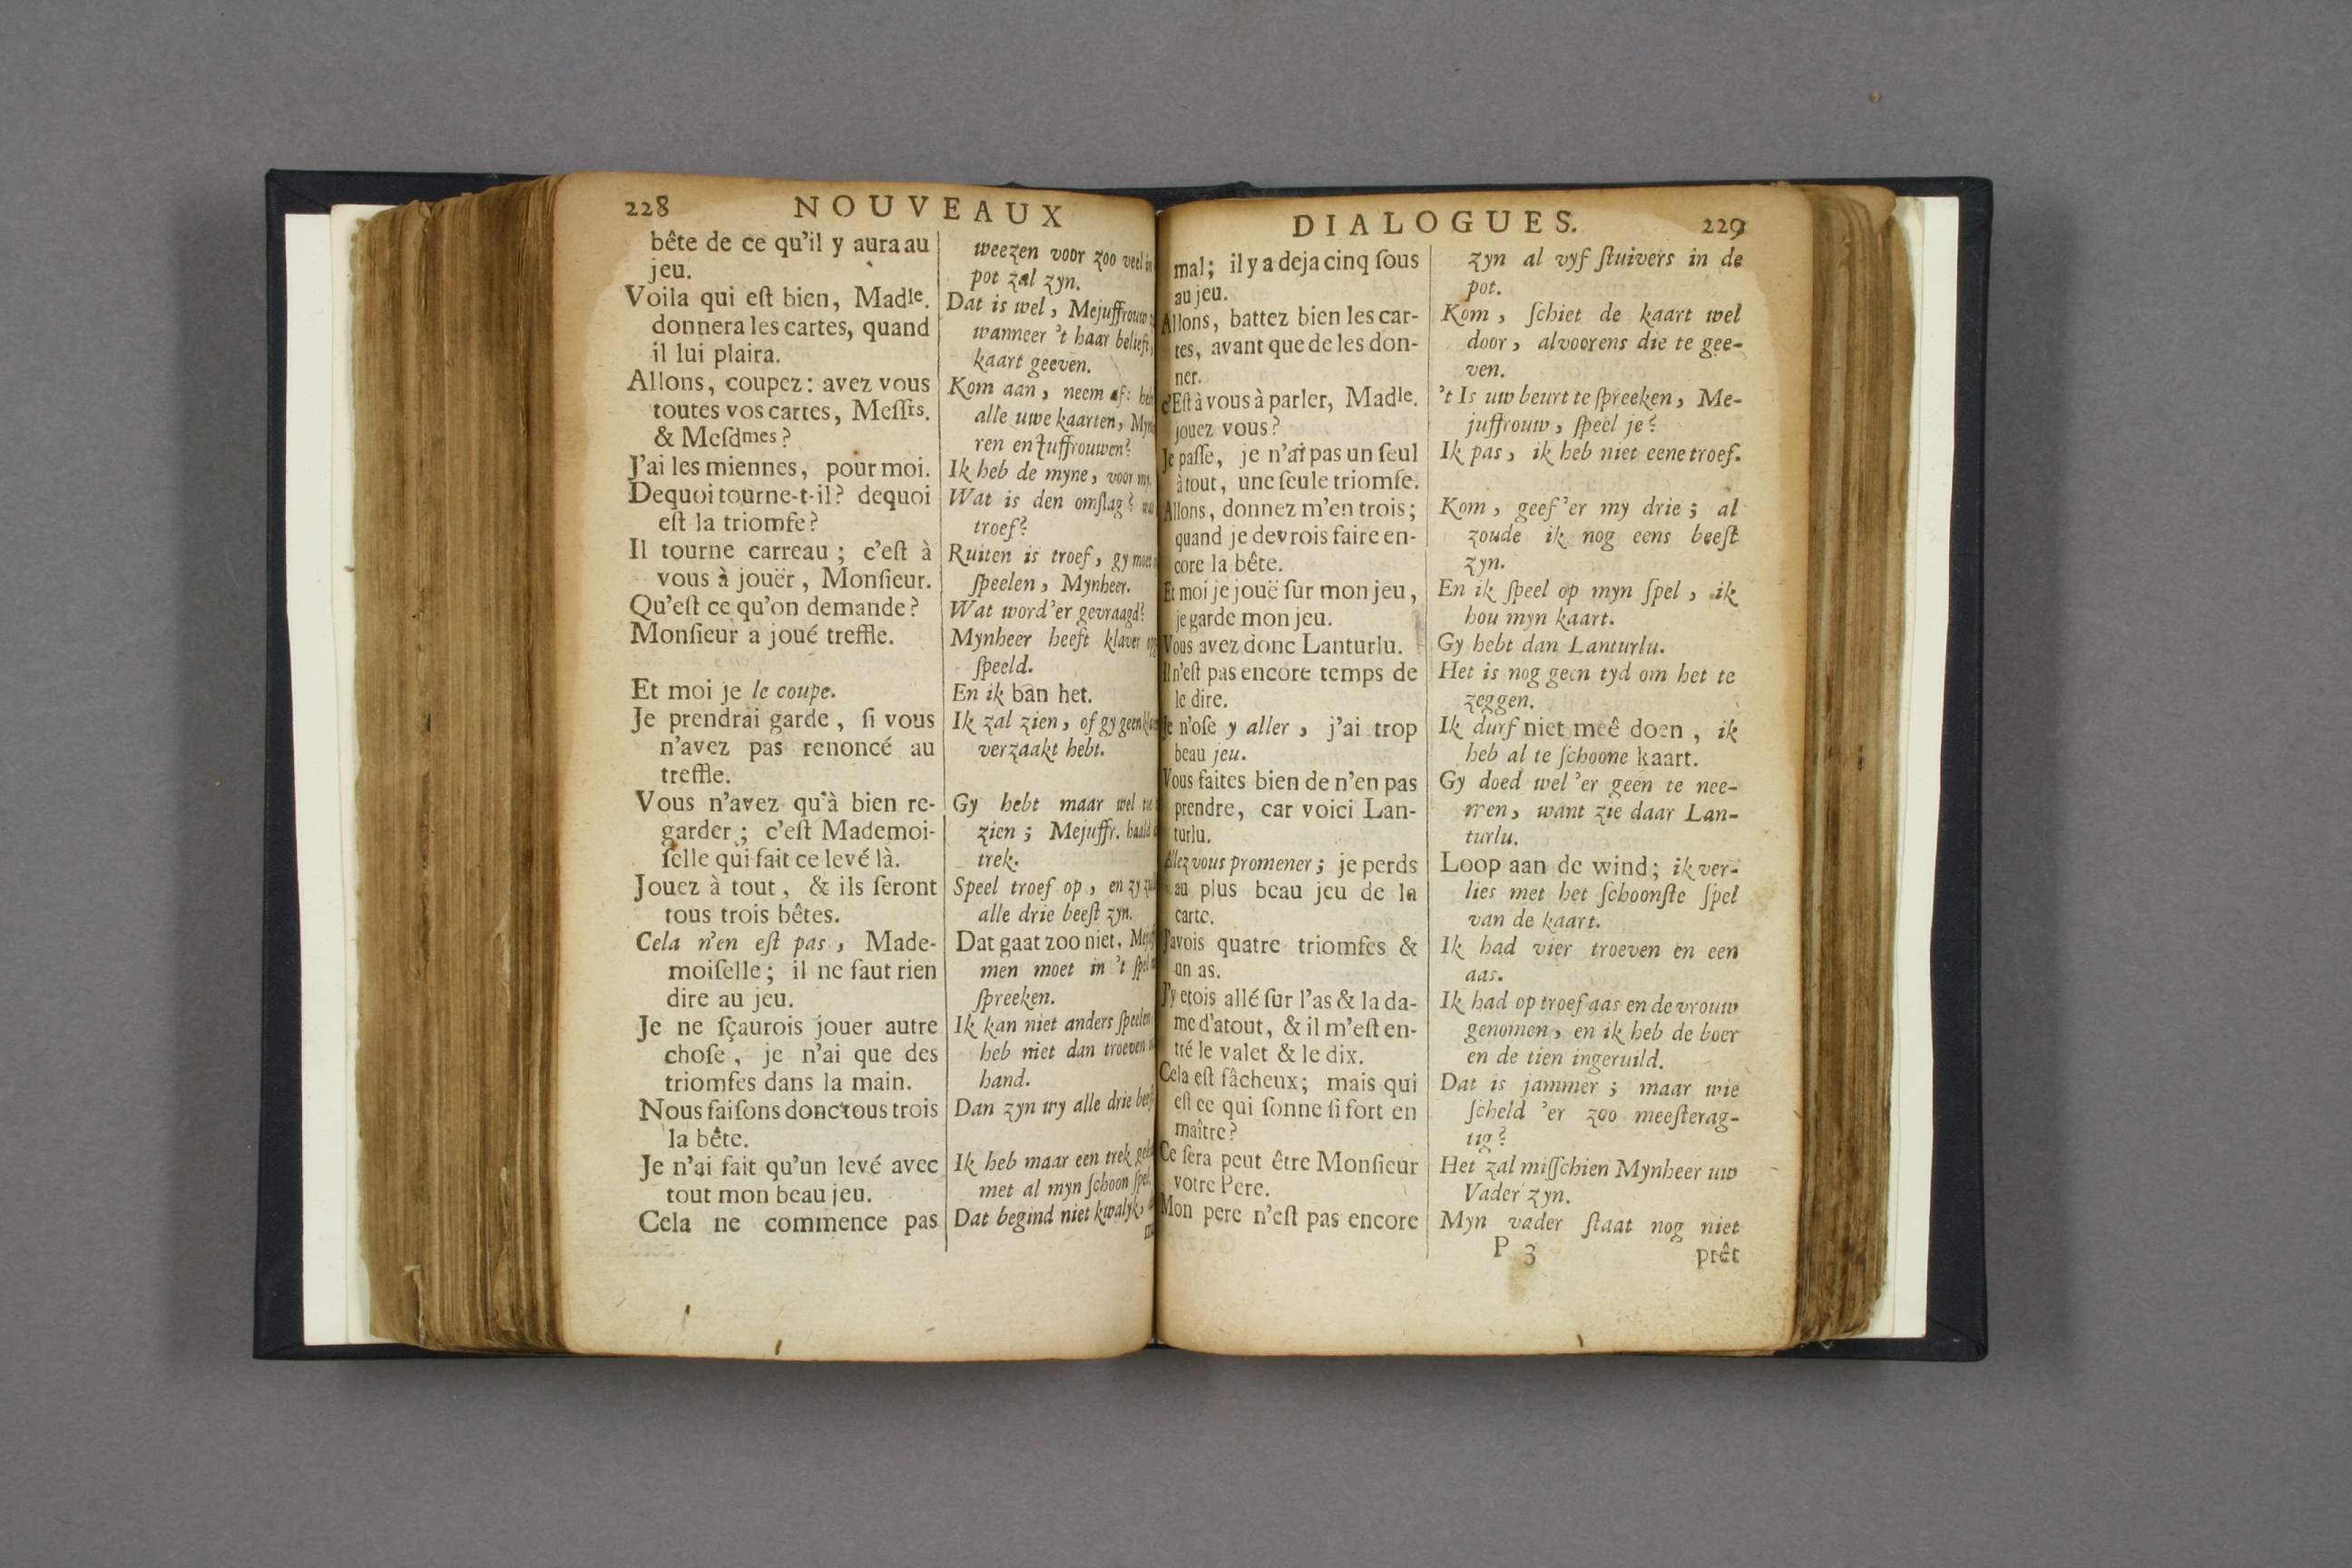 228 NOUVEAUX
bête de ce qu'il y aura au
jeu.
Voila qui eſt bien, Madle.
donnera les cartes, quand
il lui plaira.
Allons, coupez: avez vous
toutes vos cartes, Meſſrs.
& Meſdmes?
J'ai les miennes, pour moi.
Dequoi tourne-t-il? dequoi
eſt la triomfe?
Il tourne carreau; c'eſt à
vous à jouër, Monſieur.
Qu'eſt ce qu'on demande?
Monſieur a joué treffle.
Et moi je le coupe.
Je prendrai garde, ſi vous
n'avez pas renoncé au
treffle.
Vous n'avez qu'à bien re-
garder; c'eſt Mademoi-
ſelle qui fait ce levé là.
Jouez à tout, & ils ſeront
tous trois bêtes.
Cela n'en eſt pas, Made-
moiſelle; il ne faut rien
dire au jeu.
Je ne ſçaurois jouer autre
choſe, je n'ai que des
triomfes dans la main.
Nous faiſons donc tous trois
la bête.
Je n'ai fait qu'un levé avec
tout mon beau jeu.
Cela ne commence pas
weezen voor zoo veel
pot zal zyn.
Dat is wel, Mejuffrouw
wanneer 't haar belieft,
kaart geeven.
Kom aan, neem af:
alle uwe kaarten,
ren en Juffrouwen?
Ik heb de myne, voor my.
Wat is den omſlag?
troef?
Ruiten is troef, gy moet
ſpeelen, Mynheer.
Wat word'er gevraagd?
Mynheer heeft klaver
ſpeeld.
En ik ban het.
Ik zal zien, of gy geen
verzaakt hebt.
Gy hebt maar wel
zien; Mejuffr. haald
trek.
Speel troef op, en zy
alle drie beeſt zyn.
Dat gaat zoo niet,
men moet in 't ſpel
ſpreeken.
Ik kan niet anders ſpeelen
heb niet dan troeven
hand.
Dan zyn wy alle drie
Ik heb maar een trek
met al myn ſchoon ſpel.
Dat begind niet kwalyk,
DIALOGUES. 229
mal; il y a deja cinq ſous
au jeu.
Allons, battez bien les car-
tes, avant que de les don-
ner.
c'Eſt à vous à parler, Madle.
jouez vous?
Je paſſe, je n'ai pas un ſeul
àtout, une ſeule triomfe.
Allons, donnez m'en trois;
quand je devrois faire en-
core la bête.
Et moi je jouë ſur mon jeu,
je garde mon jeu.
Vous avez donc Lanturlu.
Il n'eſt pas encore temps de
le dire.
Je n'oſe y aller, j'ai trop
beau jeu.
Vous faites bien de n'en pas
prendre, car voici Lan-
turlu.
Allez vous promener; je perds
au plus beau jeu de la
carte.
J'avois quatre triomfes &
un as.
J'y etois allé ſur l'as & la da-
me d'atout, & il m'eſt en-
tré le valet & le dix.
Cela eſt fâcheux; mais qui
eſt ce qui ſonne ſi fort en
maître?
Ce ſera peut être Monſieur
votre Pere.
Mon pere n'eſt pas encore
zyn al vyf ſtuivers in de
pot.
Kom, ſchiet de kaart wel
door, alvoorens die te gee-
ven.
't Is uw beurt te ſpreeken, Me-
juffrouw, ſpeel je?
Ik pas, ik heb niet eene troef.
Kom, geef 'er my drie; al
zoude ik nog eens beeſt
zyn.
En ik ſpeel op myn ſpel, ik
hou myn kaart.
Gy hebt dan Lanturlu.
Het is nog geen tyd om het te
zeggen.
Ik durf niet meê doen, ik
heb al te ſchoone kaart.
Gy doed wel 'er geen te nee-
men, want zie daar Lan-
turlu.
Loop aan de wind; ik ver-
lies met het ſchoonſte ſpel
van de kaart.
Ik had vier troeven en een
aas.
Ik had op troef aas en de vrouw
genomen, en ik heb de boer
en de tien ingeruild.
Dat is jammer; maar wie
ſcheld 'er zoo meeſterag-
tig?
Het zal miſſchien Mynheer uw
Vader zyn.
Myn vader ſtaat nog niet
P 3 prêt